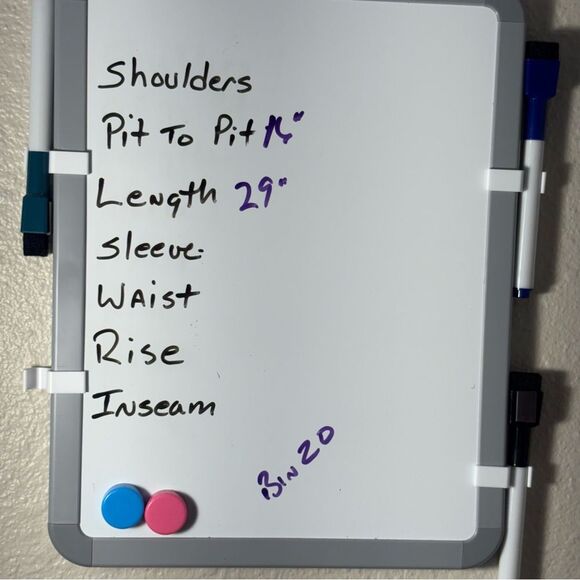 Shoulders
Pit To Pit 16"
Length 29"
Sleeve
Waist
Rise
Inseam
Bin 20